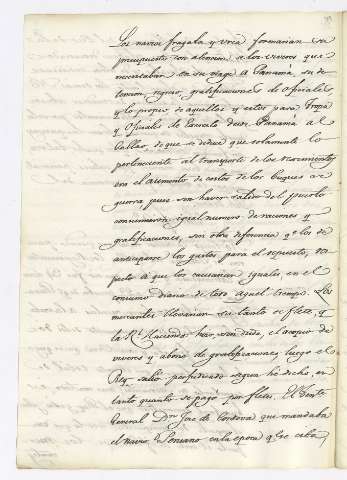 Los navios fragata y urca formarian su
presupuesto con atencion a los viveres que
necesitaban en su viage à Panamá, su de-
tencion, regreso, gratificaciones de Oficiales,
y lo propio de aquellas y estos para Tropa
y Oficiales de desde Panamá al
Callao, de que se deduce que solamente lo
perteneciente al transporte de los
era el aumento de costos de los buques de
guerra pues sin haver salido del puerto
consumieron igual numero de raciones y
gratificaciones, sin otra diferencia qe los de
anticiparse los gastos para el repuesto, res-
pecto à que los causarian iguales en el
consumo diario de todo aquel tiempo. Los
mercantes llevarian su tanto de flete, y
la Rl. Hacienda hizo, sin duda, el acopio de
viveres y abono de gratificaciones, luego el
Rey salió perjudicado segun he dicho, en
tanto quanto se pagó por fletes. El Tente
General Dn Jose de Cordova que mandaba
el navio Peruano en la epoca qe se